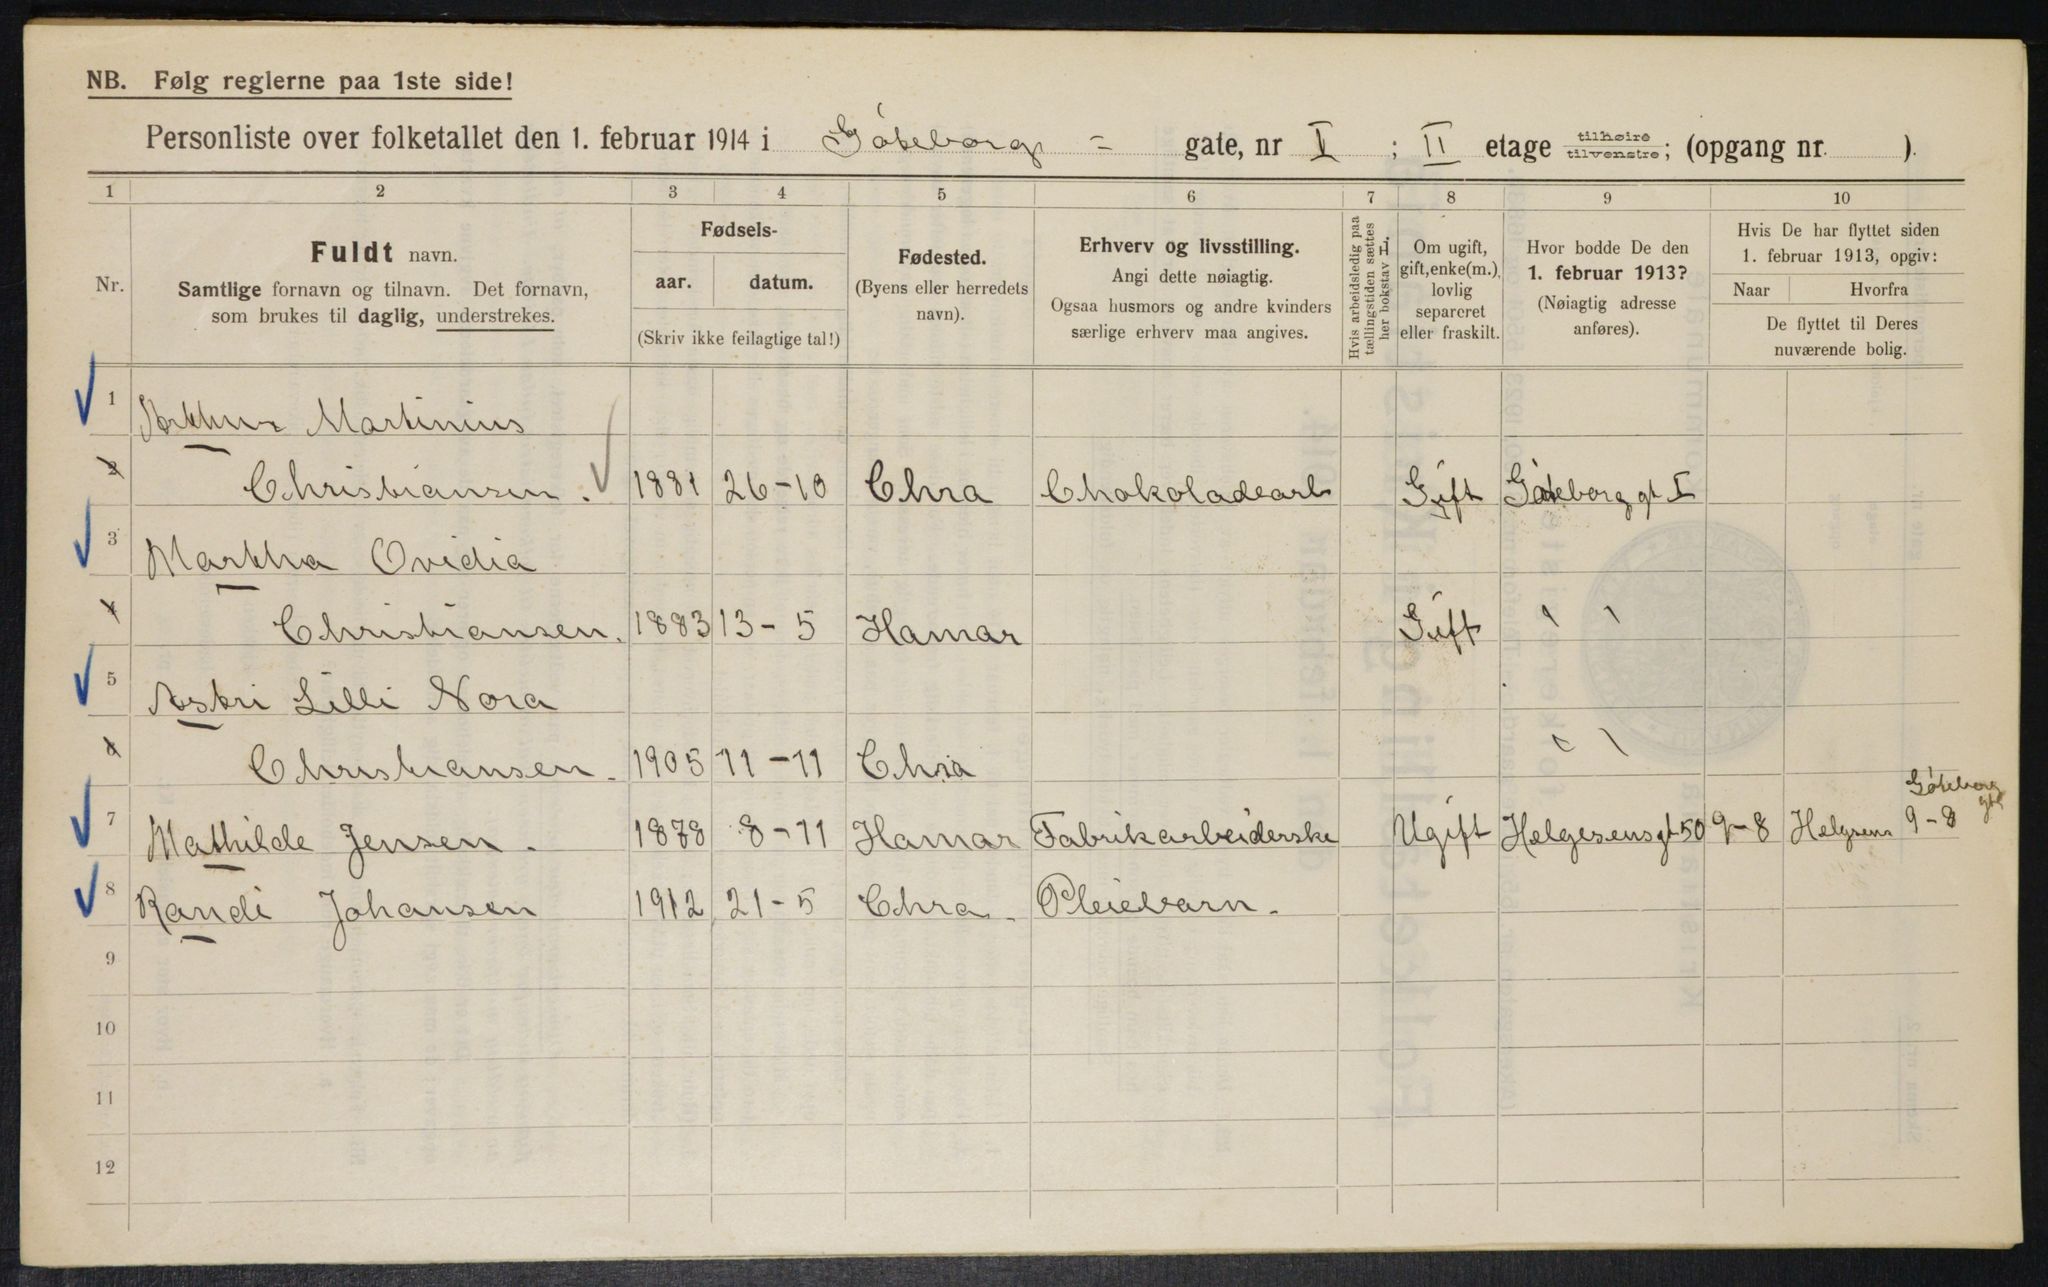 NB. Følg reglerne paa 1ste side!
Personliste over folketallet den 1. februar 1914 i Göteborg - gate, nr I ; II etage tilhøire tilvenstre; (opgang nr. ).
1 2 3 4 5 6 7 8 9 10
Nr.
Fuldt navn.
Samtlige fornavn og tilnavn. Det fornavn,
som brukes til daglig, understrekes.
Fødsels-
aar. datum.
(Skriv ikke feilagtige tal!)
Fødested.
(Byens eller herredets
navn).
Erhverv og livsstilling.
Angi dette nøiagtig.
Ogsaa husmors og andre kvinders
særlige erhverv maa angives.
Hvis arbeidsledig paa
tællingstiden sættes
her bokstav L.
Om ugift,
gift, enke(m.),
lovlig
separeret
eller fraskilt.
Hvor bodde De den
1. februar 1913?
(Nøiagtig adresse
anføres).
Hvis De har flyttet siden
1. februar 1913, opgiv:
Naar Hvorfra
De flyttet til Deres
nuværende bolig.
1 Arthur Martinius
2 Christiansen. 1881 26-10 Chra Chokoladearb Gift Göteborg gt I
3 Martha Ovidia
4 Christiansen. 1883 13-5 Hamar Gift " "
5 Astri Lilli Nora
6 Christiansen. 1905 11-11 Chra " "
Göteborg
7 Mathilde Jensen. 1878 8-11 Hamar Fabrikarbeiderske Ugift Helgesens gt 50 9-8 Helgsens 9-8
8 Randi Johansen 1912 21-5 Chra. Pleiebarn.
9
10
11
12